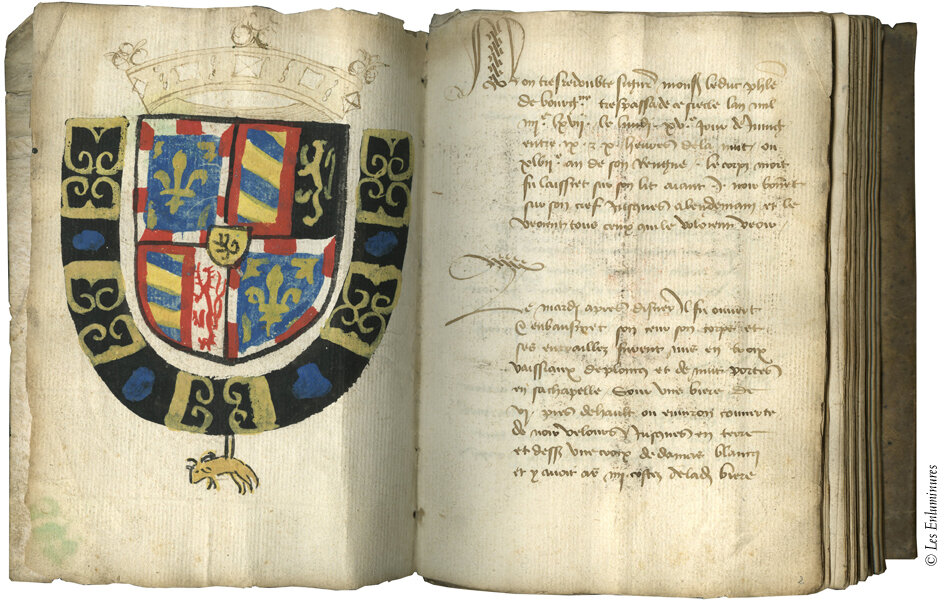 Mon tresredoubte signeur monsr le duc phle
de bourgne trespassa de ce siecle lan mil
iiiic lxvii le lundi xve jour de Juing
entre ix et x heures de la nuit ou
xlviie an de son Rengne le corps mort
fu laissiet sur son lit aiant j noir bonnet
sur son cief jusques a lendemain et le
veoient tous ceux qui le voloient veoir
Le mardi apres disner Il fu ouvert
et enbausmet son ceur son corps et
ses entrailles furent mis en trois
vaissiaux de plomcq et de nuit portes
en sa chapelle Sour une biere de
vi pies de hault ou environ couverte
de noir velours jusques en terre
et dess une croix de damas blancq
et y avoit as iiii costez de lad biere
2
© Les Enluminures